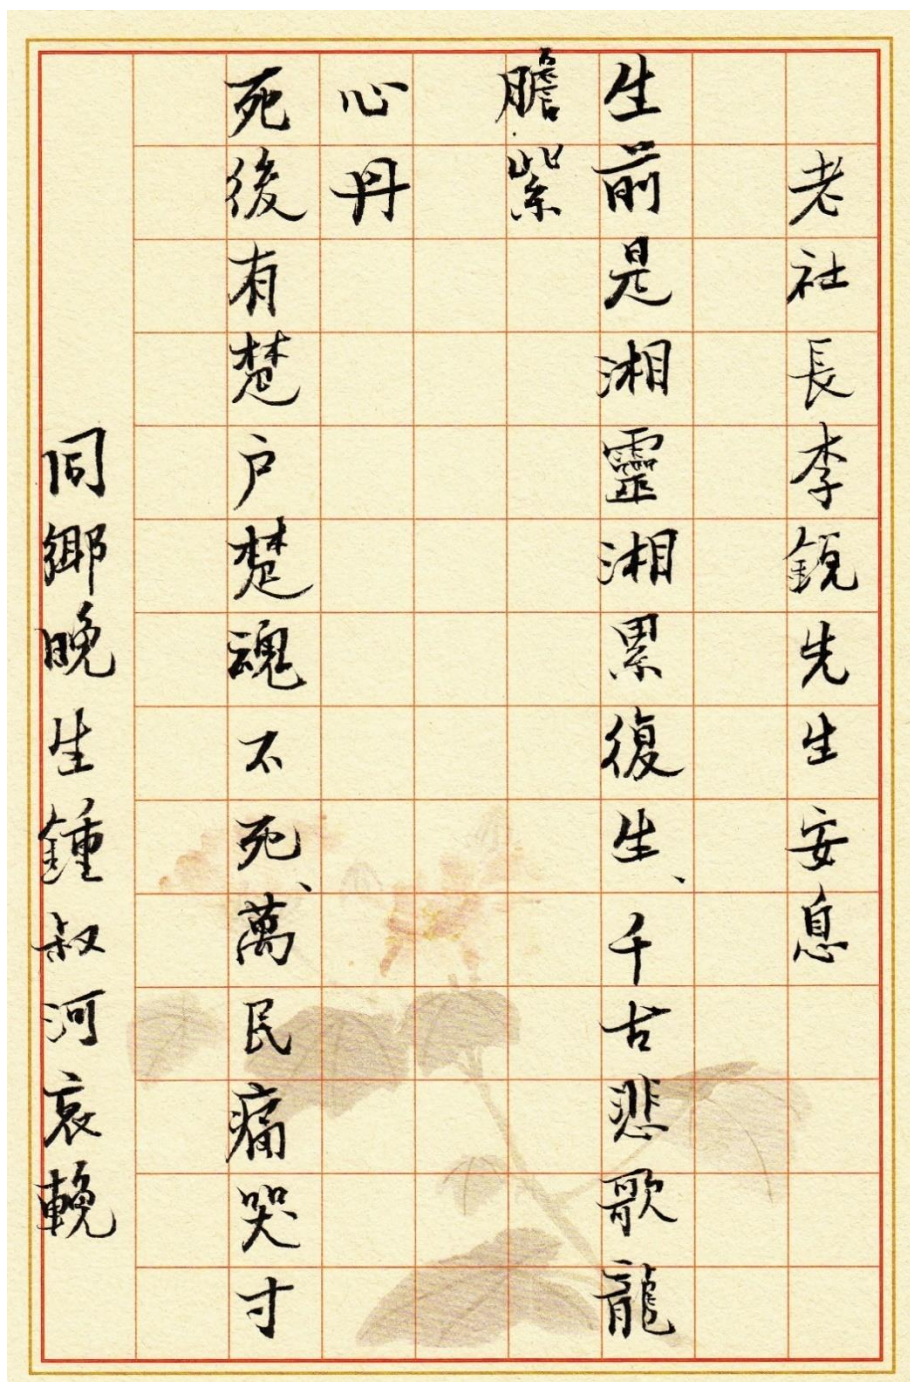 老社長李銳先生安息
生前是湘靈湘累復生、千古悲歌龍
膽紫
死後有楚户楚魂不死、萬民痛哭寸
心丹
同鄉晚生鍾叔河哀輓